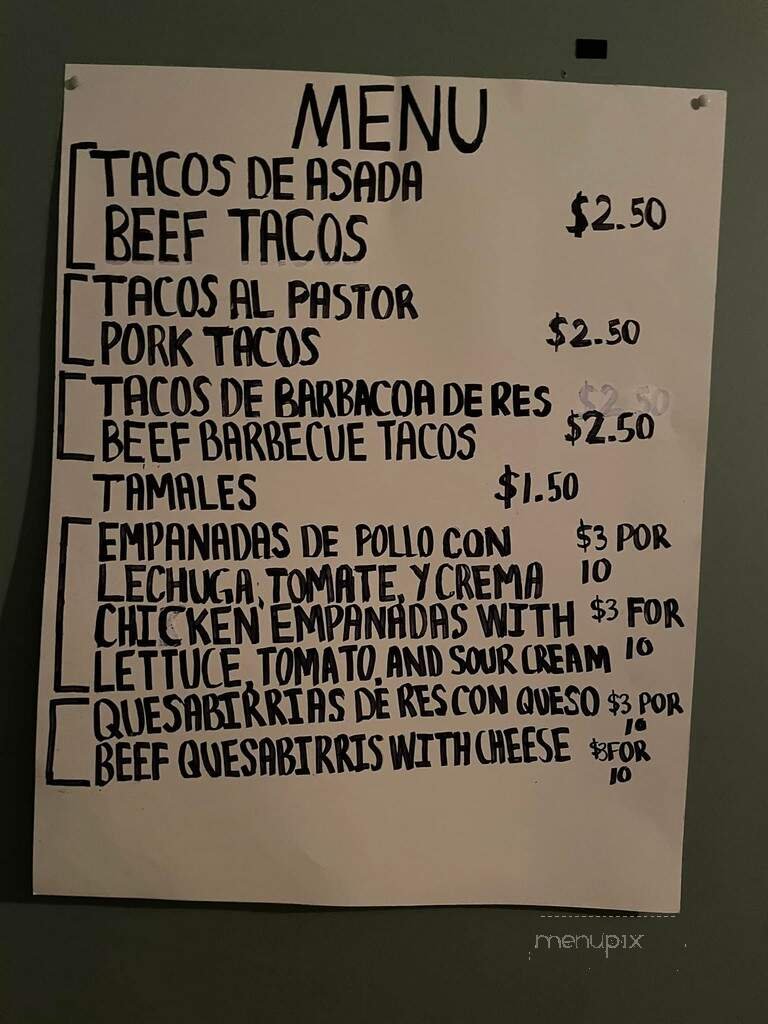 MENU
TACOS DE ASADA
BEEF TACOS $2.50
TACOS AL PASTOR
PORK TACOS $2.50
TACOS DE BARBACOA DE RES $2.50
BEEF BARBECUE TACOS $2.50
TAMALES $1.50
EMPANADAS DE POLLO CON $3 POR
LECHUGA, TOMATE, Y CREMA 10
CHICKEN EMPANADAS WITH $3 FOR
LETTUCE, TOMATO, AND SOUR CREAM 10
QUESABIRRIAS DE RES CON QUESO $3 POR
10
BEEF QUESABIRRIS WITH CHEESE $3 FOR
10
menupix